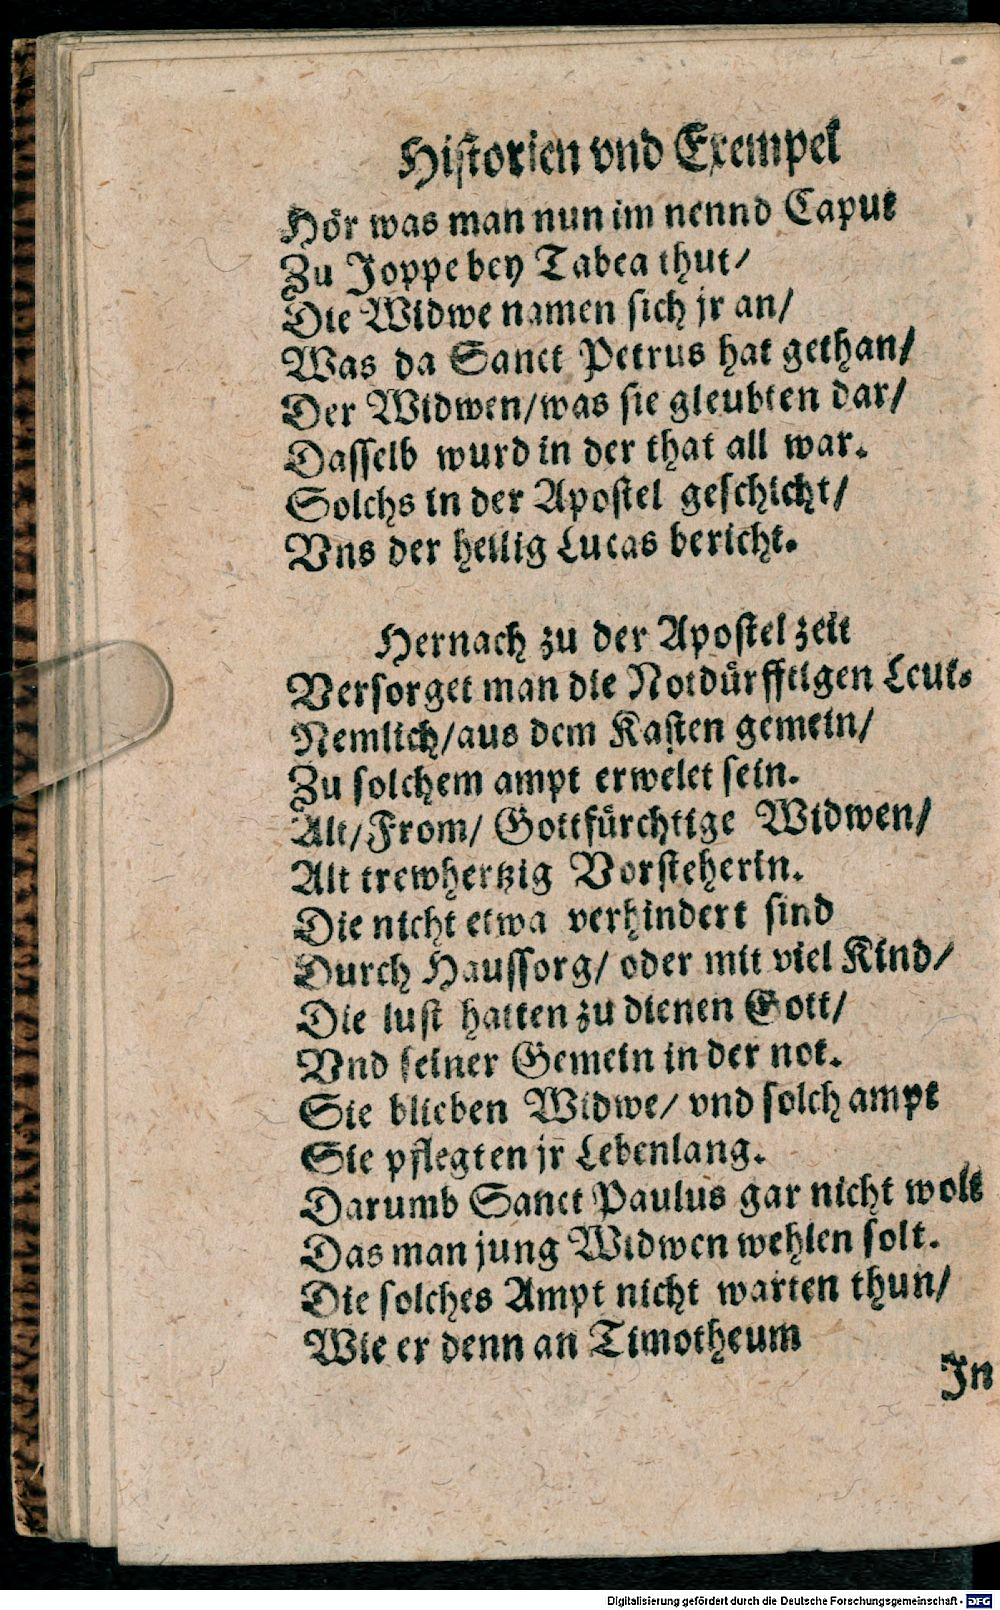 Historien vnd Exempel
Hör was man nun im nennd Caput
Zu Joppe bey Tabea thut/
Die Widwe namen sich jr an/
Was da Sanct Petrus hat gethan/
Der Widwen/was sie gleubten dar/
Dasselb wurd in der that all war.
Solchs in der Apostel geschicht/
Vns der heilig Lucas bericht.
Hernach zu der Apostel zeit
Versorget man die Notdürfftigen Leut.
Nemlich/aus dem Kasten gemein/
Zu solchem ampt erwelet sein.
Alt/From/ Gottfürchtige Widwen/
Alt trewhertzig Vorsteherin.
Die nicht etwa verhindert sind
Durch Haussorg/ oder mit viel Kind/
Die lust hatten zu dienen Gott/
Vnd seiner Gemein in der not.
Sie blieben Widwe/ vnd solch ampt
Sie pflegten jr̄ Lebenlang.
Darumb Sanct Paulus gar nicht wolt
Das man jung Widwen wehlen solt.
Die solches Ampt nicht warten thun/
Wie er denn an Timotheum
Jn
Digitalisierung gefördert durch die Deutsche Forschungsgemeinschaft - DFG